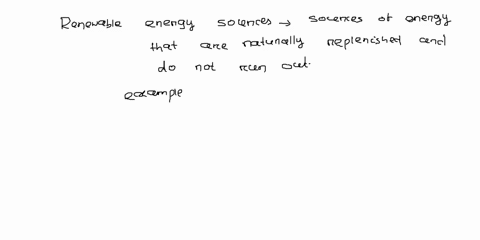 Renewable energy sources → sources of energy
that are naturally replenished and
do not run out.
example